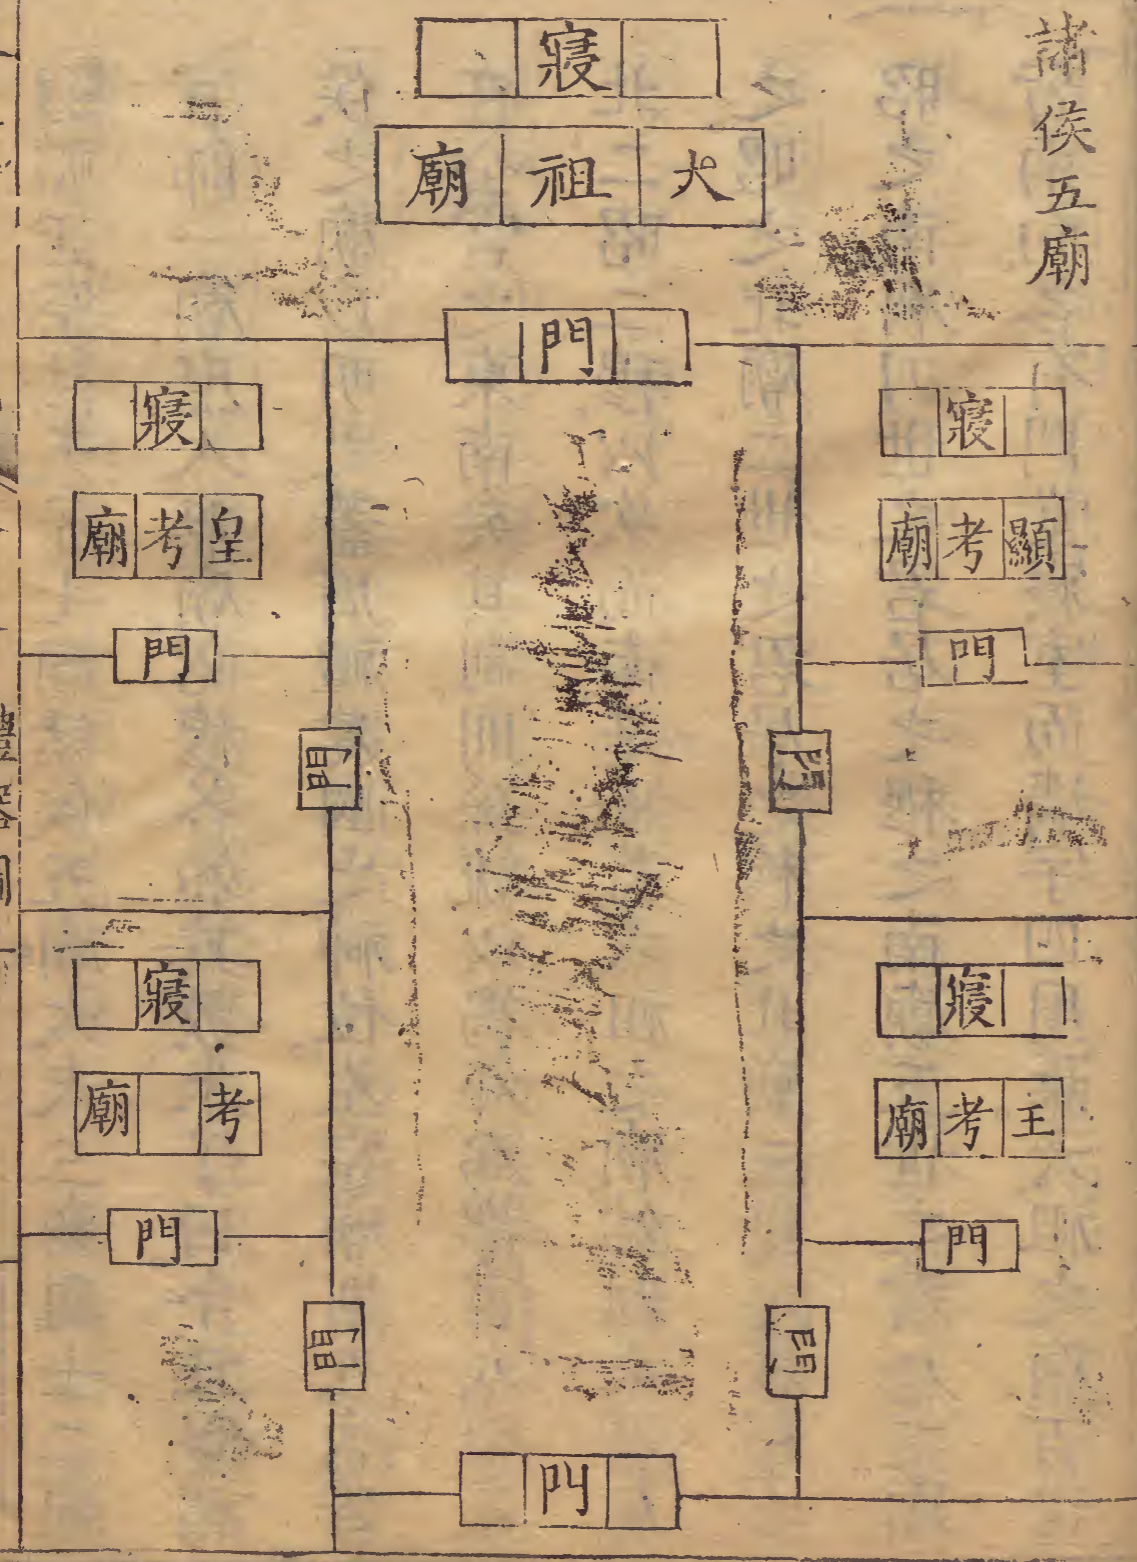 諸侯五廟
寢
太祖廟
門
寢
顯考廟
門
門
寢
皇考廟
門
門
寢
王考廟
門
門
寢
考廟
門
門
門